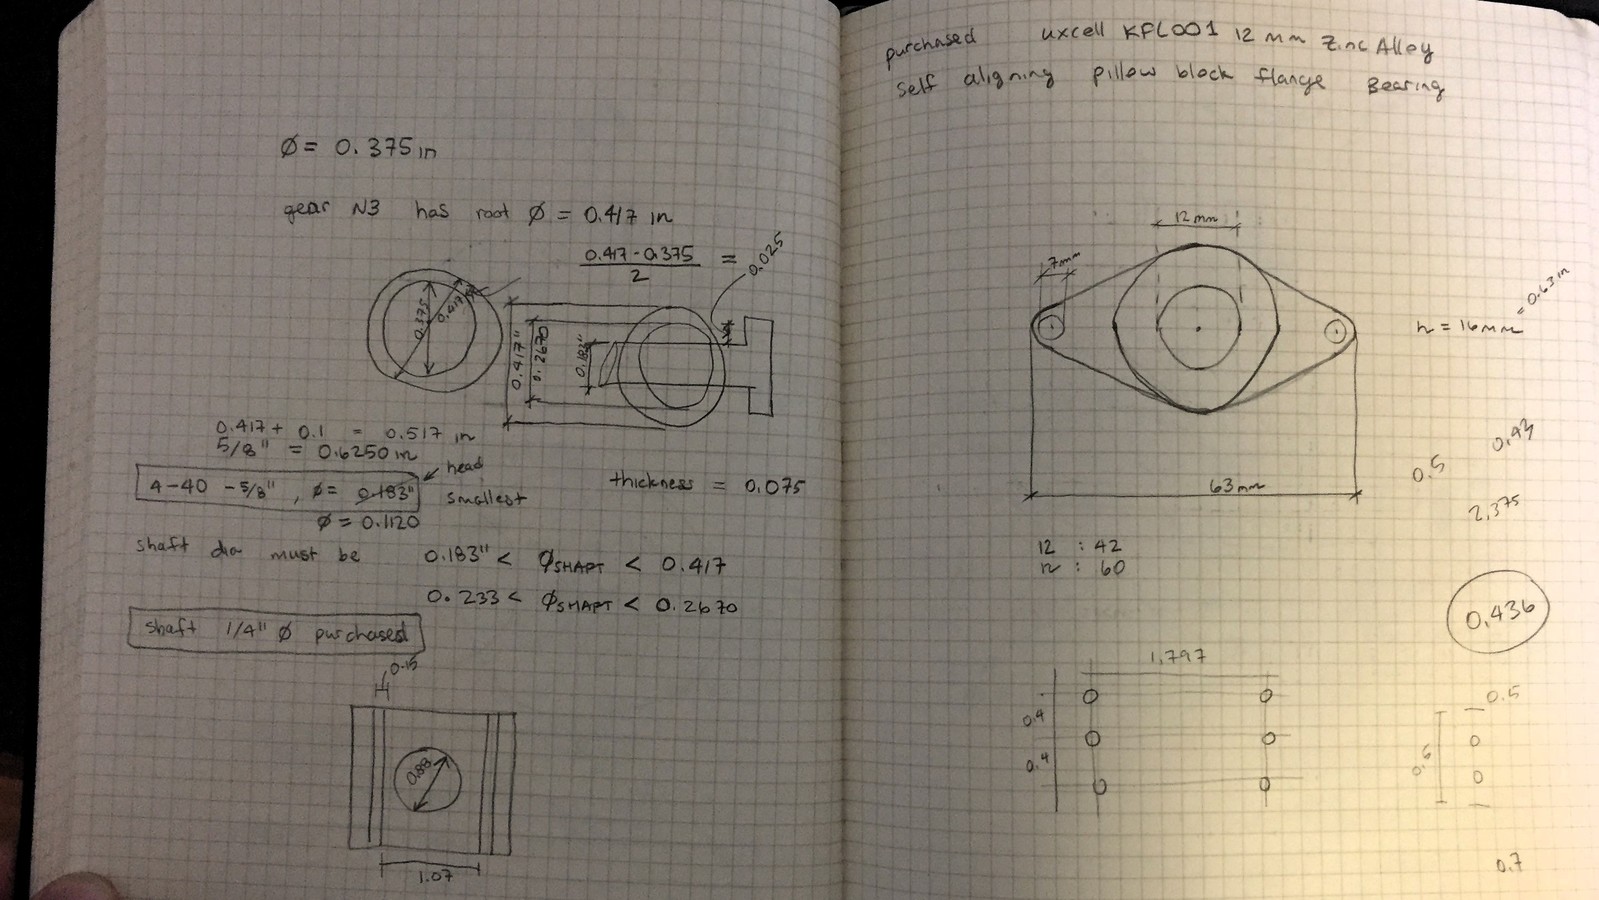 Ø = 0.375 in
gear N3 has root Ø = 0.417 in
0.417 - 0.375
2
=
0.025
0.375
0.417
0.417"
0.2670
0.183"
0.417 + 0.1 = 0.517 in
5/8" = 0.6250 in
4-40 - 5/8", Ø = 0.183"
head
smallest
Ø = 0.1120
thickness = 0.075
shaft dia must be 0.183" < ØSHAFT < 0.417
0.233 < ØSHAFT < 0.2670
shaft 1/4" Ø purchased
0.15
0.88
1.07
purchased uxcell KFL001 12 mm Zinc Alloy
self aligning pillow block flange Bearing
12 mm
7mm
h = 16mm = 0.63 in
63mm
0.5
2.375
12 : 42
n : 60
0.436
1.797
0.4
0.4
0.5
0.6
0.7